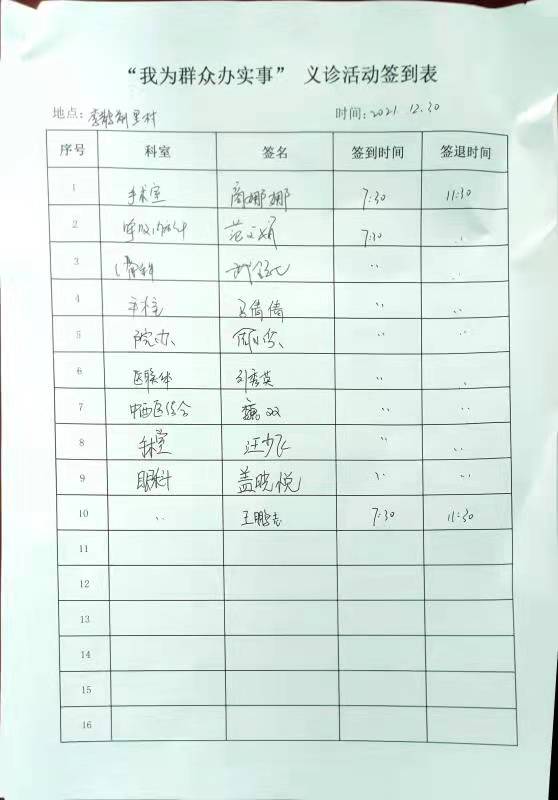 “我为群众办实事” 义诊活动签到表
地点: 村 时间:2021 12.30
序号 科室 签名 签到时间 签退时间
1 手术室 商娜娜 7:30 11:30
2 呼吸内科 范文娟 7:30 〃
3 骨科 〃 〃
4 倩倩 〃 〃
5 院办 〃 〃
6 医联体 刘秀英 〃 〃
7 中西医结合 魏双 〃 〃
8 手术室 汪少飞 〃 〃
9 眼科 盖晓悦 〃 〃
10 〃 王鹏志 7:30 11:30
11
12
13
14
15
16